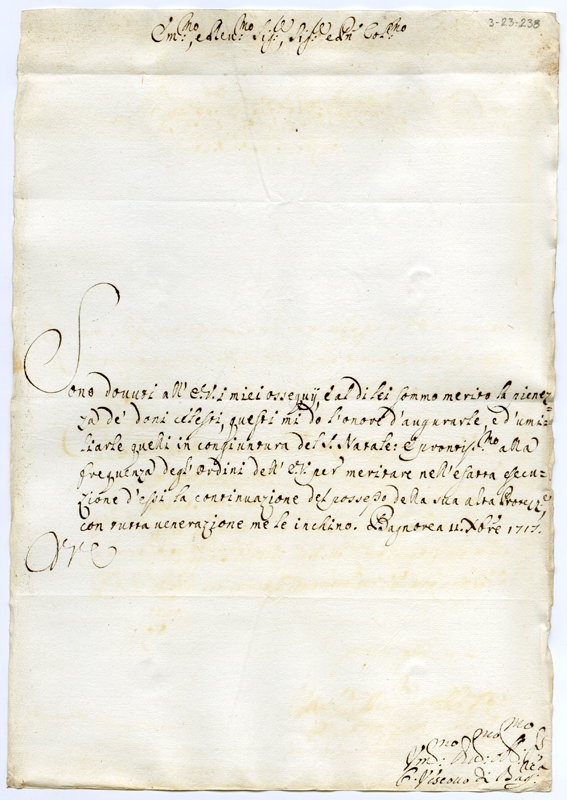 3-23-238
Em.mo, e Reu.mo Sig.r, Sig.r e Pñ Col.mo
Sono douuti all' E.V. i miei ossequij, è al di lei sommo merito la pienez=
za de' doni celesti, questi mi dò l'onore d'augurarle, ed' umi=
liarle quelli in congiuntura del S. Natale: E prontis.mo alla
frequenza degl' ordini dell' E.V. per meritare nell' esatta esecu=
zione d'essi la continuazione del possesso della sua alta Protez.e,
con tutta uenerazione me le inchino. Bagnorea 11. Xbre 1717.
D V E
Um.mo Di.mo Ob.mo
Vescouo di Bag.a